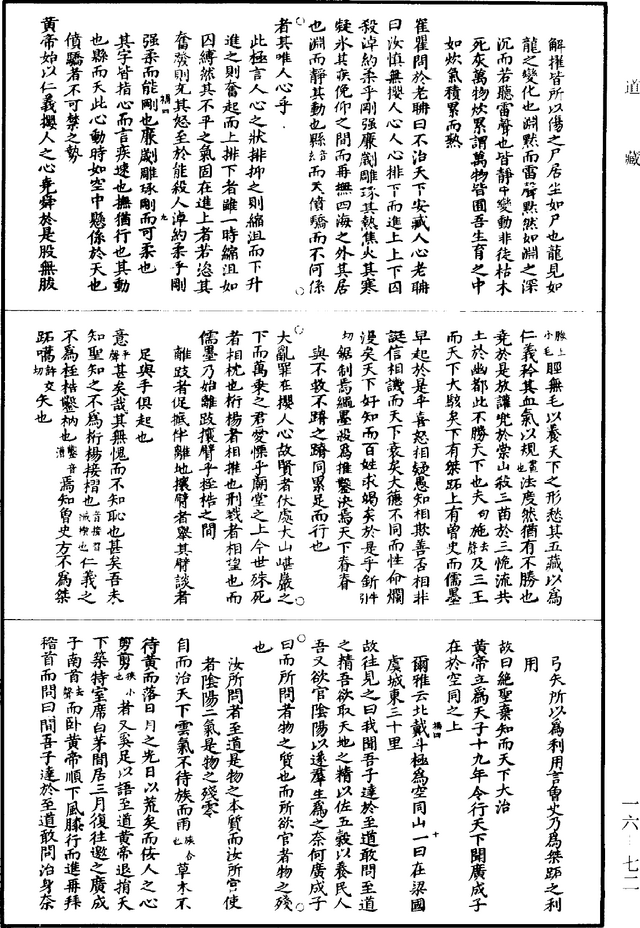 道藏
解摧皆所以傷之尸居坐如尸也龍見如
龍之變化也淵黙而雷聲黙然如淵之深
沉而若聽雷聲也皆静中變動非徒枯木
死灰萬物炊累謂萬物皆囿吾生育之中
如炊氣積累而熱
崔瞿問於老聃曰不治天下安臧人心老聃
曰汝慎無攖人心人心排下而進上上下囚
殺淖約柔乎剛强廉劌雕琢其熱焦火其寒
凝氷其疾俛仰之間而再撫四海之外其居
也淵而静其動也縣而天僨驕而不可係
者其唯人心乎
此極言人心之狀排抑之則縮沮而下升
進之則奮起而上排下者雖一時縮沮如
囚縛然其不平之氣固在進上者若恣其
奮發則充其怒至於能殺人淖約柔乎剛
强柔而能剛也廉劌雕琢剛而可柔也
其字皆指心而言疾速也撫猶行也其動
也縣而天此心動時如空中懸係於天也
僨驕者不可禁之勢
黄帝始以仁義攖人之心堯舜於是股無胈
脛無毛以養天下之形愁其五藏以爲
仁義矜其血氣以規法度然猶有不勝也
堯於是放讙兜於崇山投三苗於三峗流共
工於幽都此不勝天下也夫施及三王
而天下大駭矣下有桀跖上有曾史而儒墨
畢起於是乎喜怒相疑愚知相欺善否相非
誕信相譏而天下衰矣大德不同而性命爛
漫矣天下好知而百姓求竭矣於是乎釿
鋸制焉繩墨殺焉椎鑿决焉天下脊脊
與不敢不蹐之蹐同累足而行也
大亂罪在攖人心故賢者伏處大山嵁巖之
下而萬乘之君憂慄乎廟堂之上今世殊死
者相枕也桁楊者相推也刑戮者相望也而
儒墨乃始離跂攘臂乎桎梏之間
離跂者促膝伴離地攘臂者舉其臂談者
足與手俱起也
意甚矣哉其無愧而不知恥也甚矣吾未
知聖知之不爲桁楊接槢也仁義之
不爲桎梏鑿枘也焉知曾史方不爲桀
跖嚆矢也
弓矢所以爲利用言曾史乃爲桀跖之利
用
故曰絶聖棄知而天下大治
黄帝立爲天子十九年令行天下聞廣成子
在於空同之上
爾雅云北戴斗極爲空同山一曰在梁國
虞城東三十里
故往見之曰我聞吾子達於至道敢問至道
之精吾欲取天地之精以佐五穀以養民人
吾又欲官陰陽以遂羣生爲之奈何廣成子
曰而所問者物之質也而所欲官者物之殘
也
汝所問者至道是物之本質而汝所官使
者陰陽二氣是物之殘零
自而治天下雲氣不待族而雨草木不
待黄而落日月之光日以荒矣而佞人之心
翦翦者又奚足以語至道黄帝退捐天
下築特室席白茅間居三月復往邀之廣成
子南首而卧黄帝順下風膝行而進再拜
稽首而問曰聞吾子達於至道敢問治身奈
一六-七二